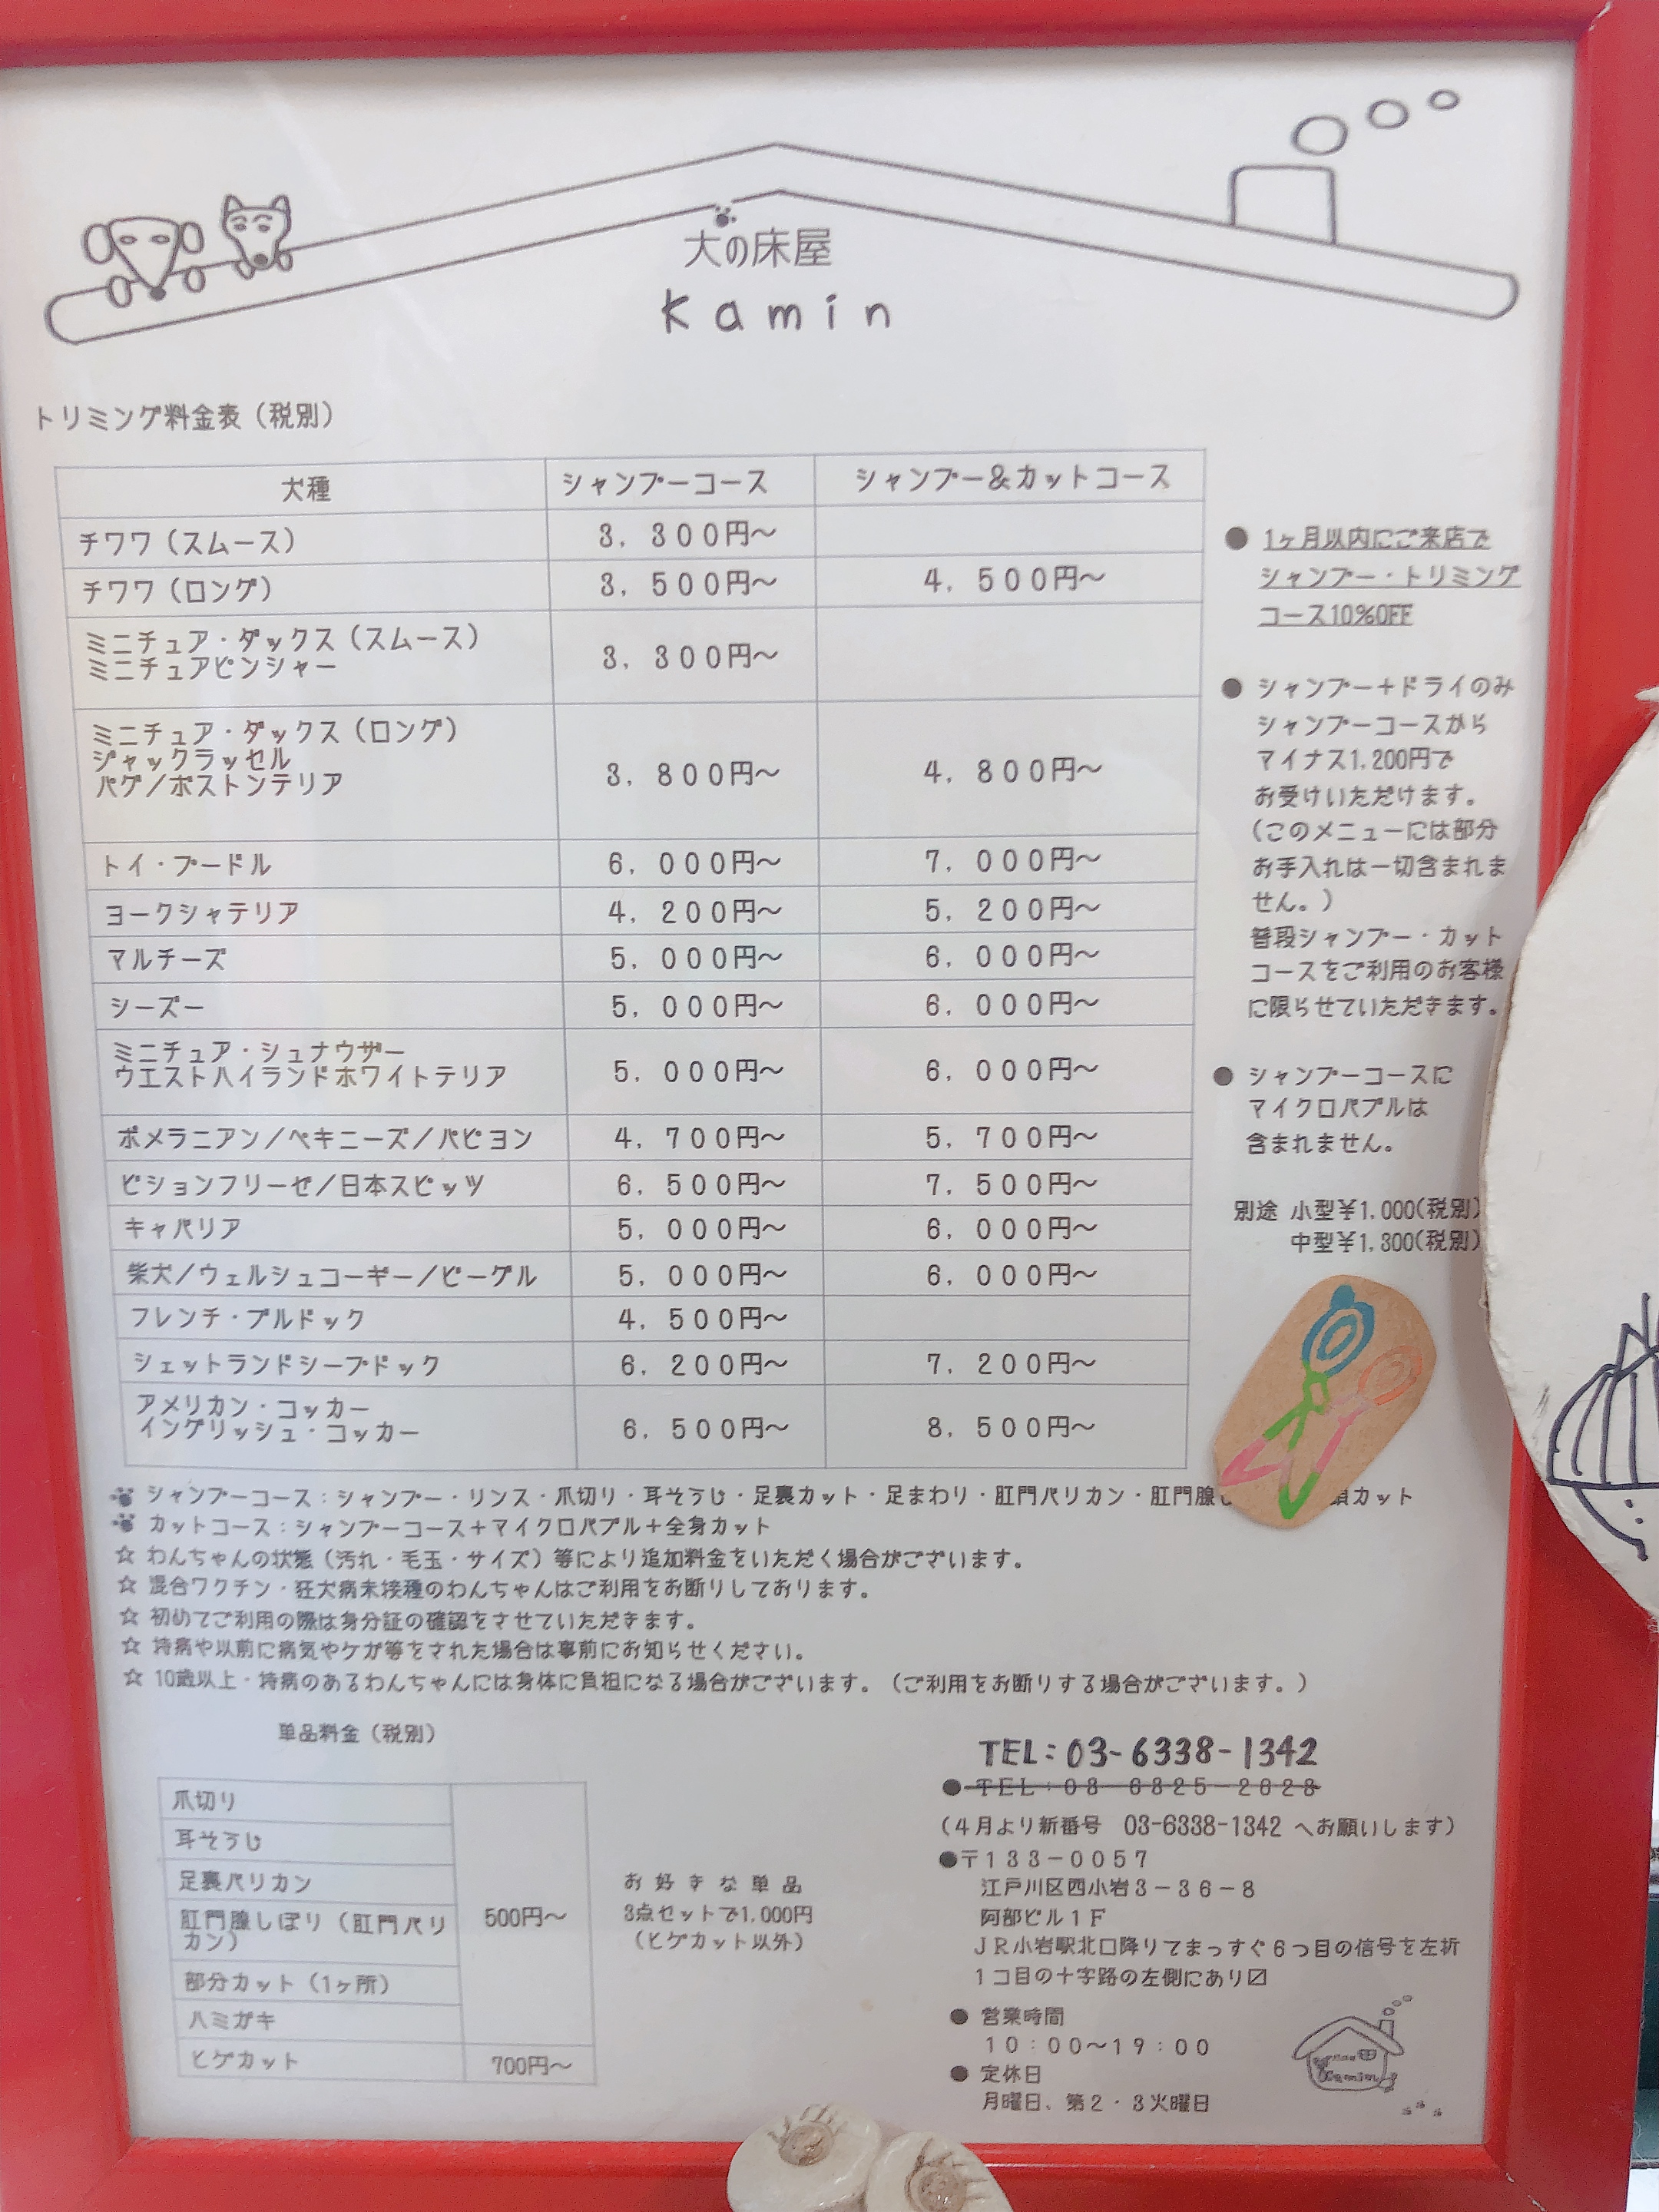 犬の床屋
Kamin
トリミング料金表（税別）
犬種 シャンプーコース シャンプー&カットコース
チワワ（スムース） 3，300円〜
チワワ（ロング） 3，500円〜 4，500円〜
ミニチュア・ダックス（スムース）
ミニチュアピンシャー 3，300円〜
ミニチュア・ダックス（ロング）
ジャックラッセル
パグ／ボストンテリア 3，800円〜 4，800円〜
トイ・プードル 6，000円〜 7，000円〜
ヨークシャテリア 4，200円〜 5，200円〜
マルチーズ 5，000円〜 6，000円〜
シーズー 5，000円〜 6，000円〜
ミニチュア・シュナウザー
ウエストハイランドホワイトテリア 5，000円〜 6，000円〜
ポメラニアン／ペキニーズ／パピヨン 4，700円〜 5，700円〜
ビションフリーゼ／日本スピッツ 6，500円〜 7，500円〜
キャバリア 5，000円〜 6，000円〜
柴犬／ウェルシュコーギー／ビーグル 5，000円〜 6，000円〜
フレンチ・ブルドック 4，500円〜
シェットランドシープドック 6，200円〜 7，200円〜
アメリカン・コッカー
イングリッシュ・コッカー 6，500円〜 8，500円〜
● 1ヶ月以内にご来店で
シャンプー・トリミング
コース10%OFF
● シャンプー＋ドライのみ
シャンプーコースから
マイナス1,200円で
お受けいただけます。
（このメニューには部分
お手入れは一切含まれま
せん。）
普段シャンプー・カット
コースをご利用のお客様
に限らせていただきます。
● シャンプーコースに
マイクロバブルは
含まれません。
別途 小型¥1,000(税別)
中型¥1,300(税別)
シャンプーコース：シャンプー・リンス・爪切り・耳そうじ・足裏カット・足まわり・肛門バリカン・肛門腺 カット
カットコース：シャンプーコース＋マイクロバブル＋全身カット
☆ わんちゃんの状態（汚れ・毛玉・サイズ）等により追加料金をいただく場合がございます。
☆ 混合ワクチン・狂犬病未接種のわんちゃんはご利用をお断りしております。
☆ 初めてご利用の際は身分証の確認をさせていただきます。
☆ 持病や以前に病気やケガ等をされた場合は事前にお知らせください。
☆ 10歳以上・持病のあるわんちゃんには身体に負担になる場合がございます。（ご利用をお断りする場合がございます。）
単品料金（税別）
爪切り
耳そうじ
足裏バリカン
肛門腺しぼり（肛門バリ
カン） 500円〜
部分カット（1ヶ所）
ハミガキ
ヒゲカット 700円〜
お好きな単品
3点セットで1,000円
（ヒゲカット以外）
TEL：03-6338-1342
● TEL：03-6825-2028
（4月より新番号 03-6338-1342 へお願いします）
●〒133－0057
江戸川区西小岩3－36－8
阿部ビル1F
JR小岩駅北口降りてまっすぐ6つ目の信号を左折
1コ目の十字路の左側にあり〼
● 営業時間
10：00〜19：00
● 定休日
月曜日、第2・3火曜日
Kamin